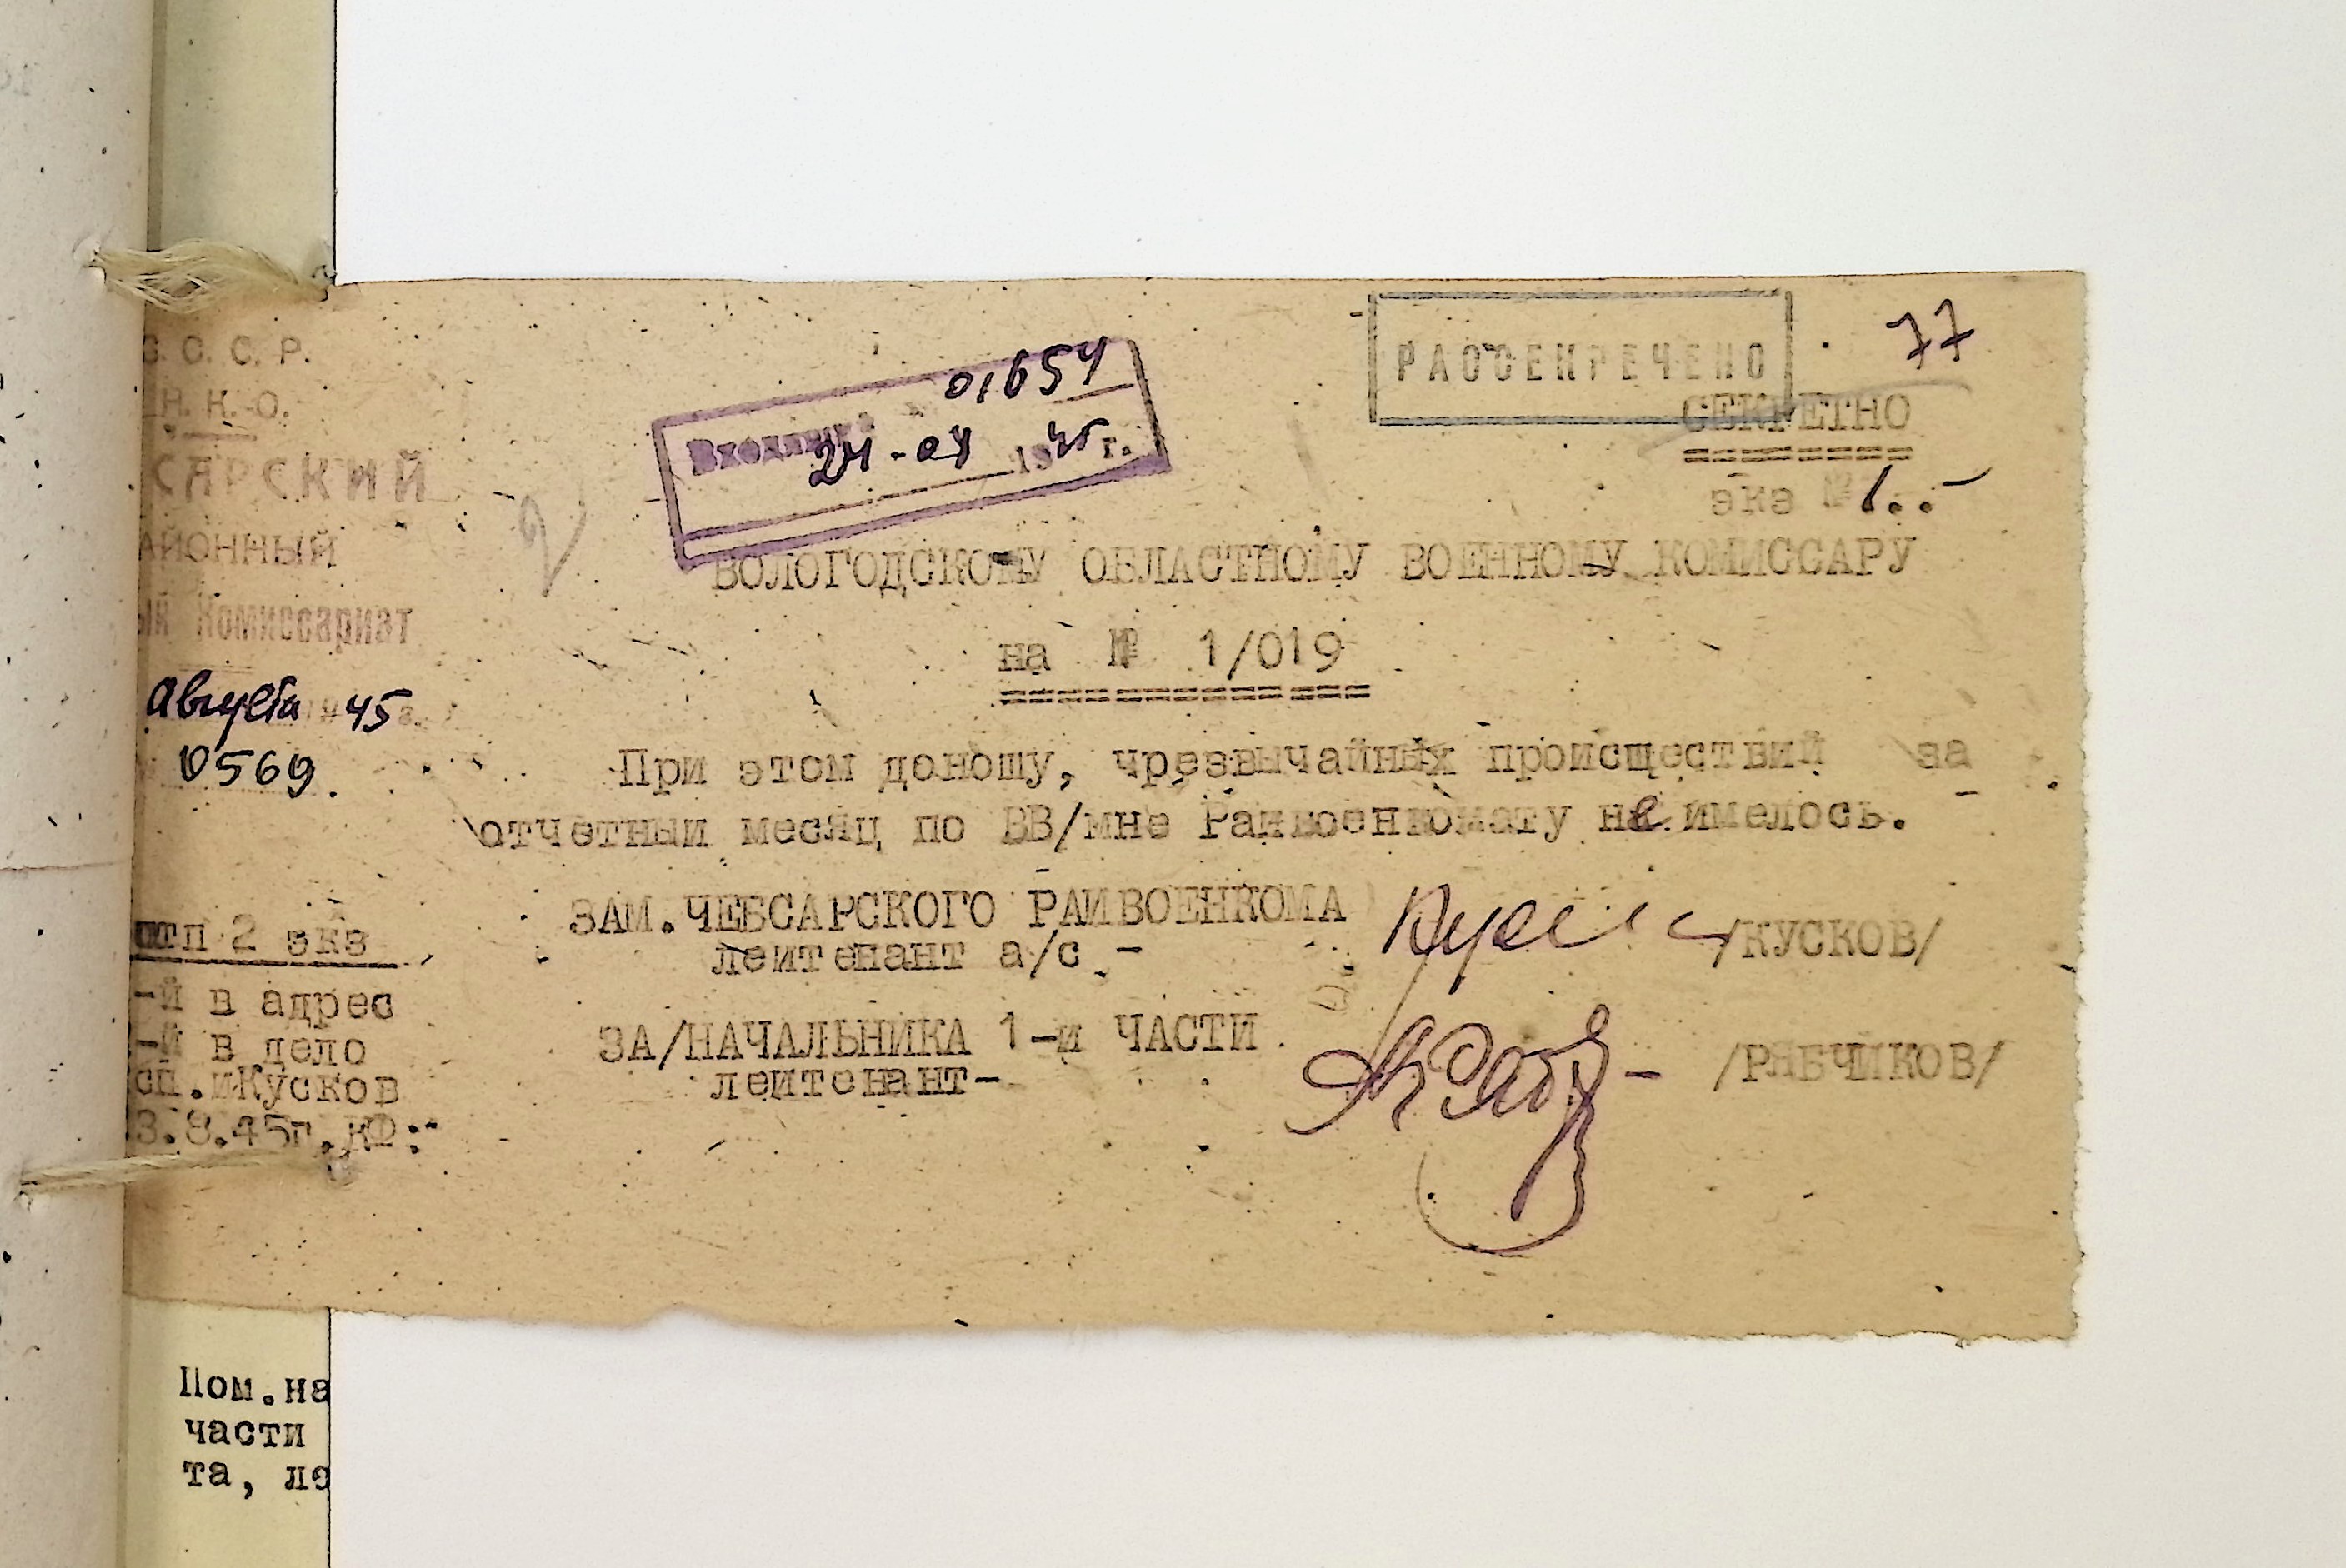 С. С. С. Р.
Н. К. О.
САРСКИЙ
АЙОННЫЙ
ый Комиссариат
Августа 45 г.
0569
отп 2 экз
-й в адрес
-й в дело
сп. Кусков
3.8.45г. КФ:-
Входящий 01654
24-08 1945 г.
РАССЕКРЕЧЕНО
77
СЕКРЕТНО
экз № 1.
ВОЛОГОДСКОМУ ОБЛАСТНОМУ ВОЕННОМУ КОМИССАРУ
на № 1/019
При этом доношу, чрезвычайных происществий за
отчетный месяц по ВВ/мне Райвоенкомату не имелось.
ЗАМ.ЧЕБСАРСКОГО РАЙВОЕНКОМА
лейтенант а/с -
/КУСКОВ/
ЗА/НАЧАЛЬНИКА 1-й ЧАСТИ
лейтенант-
/РЯБЧИКОВ/
Пом.на
части
та, ле